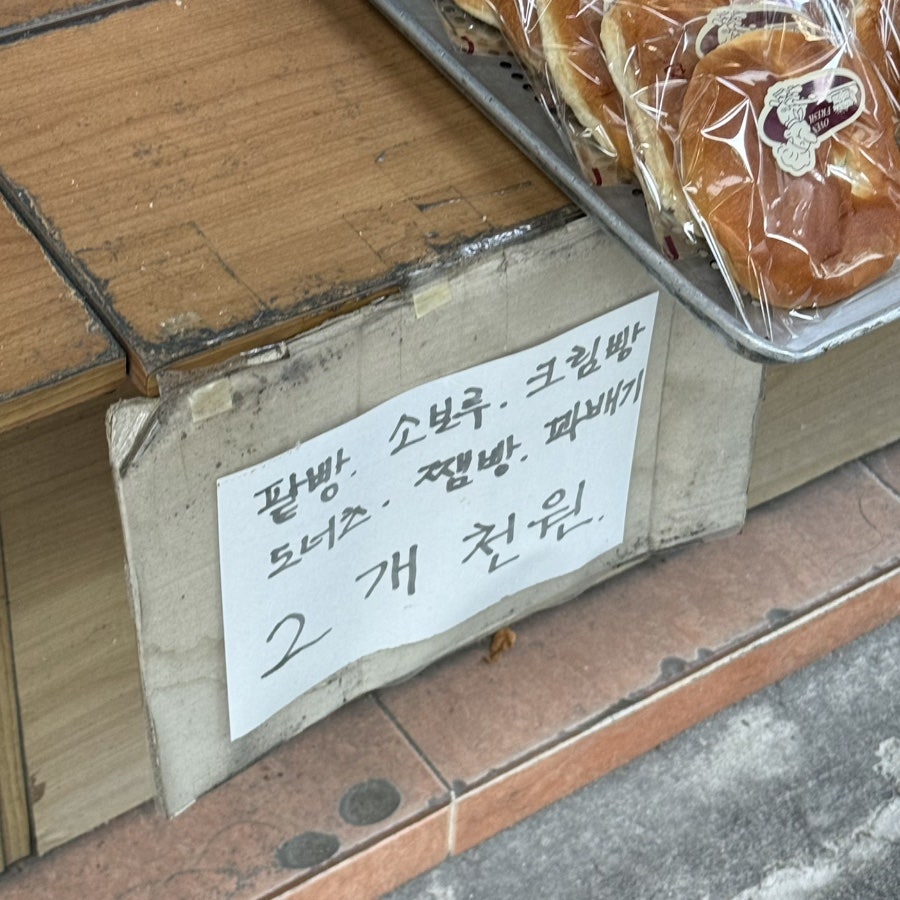 팥빵. 소보루. 크림빵
도너츠. 쨈빵. 꽈배기
2개 천원.
OVEN
FRESH